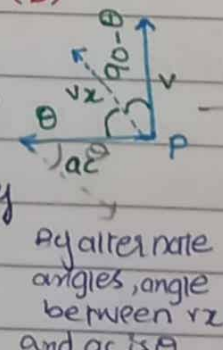 90-θ
θ
vx
v
ac
θ
P
y
By alternate
angles, angle
between vx
and ac is θ